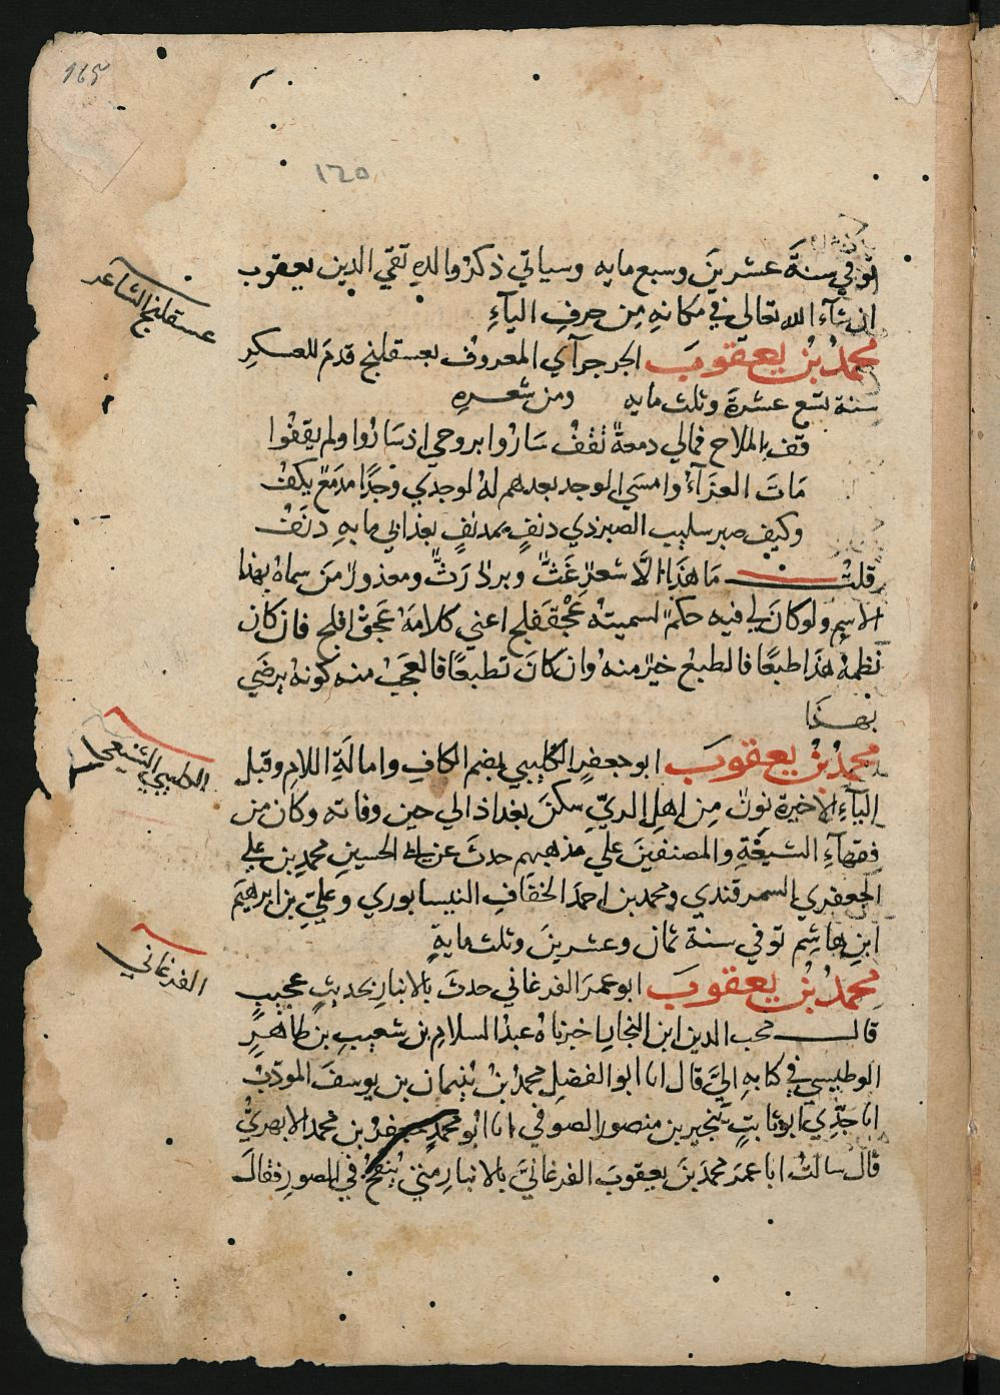 165
١٢٥
توفي سنةَ عشرينَ وسبع مايه وسياتي ذكرُ والدِهِ تقيّ الدين يعقوب
ان شآء الله تعالي في مكانهِ مِن حرفِ اليآءِ
محمدُ بْنُ يعقوبَ الجرجرآي المعروف بعسقلنج قدمَ للعسكرِ
عسقلنج الشاعر
سنة تسع عشرةَ وثلث مايه ومن شعرهِ
قف بالملاح فمالي دمعةٌ تقفُ سَارُوا بروحي اذ سَارُوا ولم يقفُوا
مَاتَ العزَآءُ وامسَي الوجد بعدهم لهُ لوجدي وَجدًا مدمَعٌ يكفُ
وكيف صبر سليب الصبر ذي دنفٍ بمدنفٍ بغداني ما بهِ دنَفُ
قلتُ مَا هذَا الَّا شعرٌ غَثٌّ وبردٌ رَثٌّ ومعذورٌ منَ سماهُ بهذا
الاسمِ ولو كانَ لي فيه حكمٌ لسميتهُ عَجْقَفلج اعني كلامهُ عَجَقٌ افلج فان كان
نَظمهُ هذا طبعًا فالطبع خيرٌ منهُ وان كانَ تطبعًا فالعجَبُ منه كونهُ يرضَي
بهذَا
محمدُ بْنُ يعقوبَ ابو جعفرٍ الكليبي بضم الكافِ وامالَةِ اللامِ وقبل
الكليبي الشيعي
اليآءِ الاخيرة نونٌ مِن اهلِ الريِّ سكنَ بغداذ الي حين وفاته وكان من
فقهآءِ الشيعَةِ والمصنفينَ علي مذهبهم حدثَ عن ابي الحسينِ محمدِ بن علي
الجعفري السمرقندي ومحمد بن احمدَ الخفَافِ النيسابوري وعليِّ بن ابرهيمَ
ابنِ هاشِم توفي سنة ثمان وعشرينَ وثلث مايةٍ
محمدُ بْنُ يعقوبَ ابو عمرَ الفرغاني حدثَ بالانبارِ بحديثٍ عجيبٍ
الفرغاني
قالَ محب الدين ابن النجار اخبرناهُ عبدُ السلامِ بن شعيبِ بن طاهرٍ
الوطيسي في كتابهِ اليَّ قال انا ابو الفضلِ محمدُ بْنُ بُنيمان بن يوسفَ المودّبُ
انا جَدِّي ابو ثابتٍ بنجير بن منصور الصوفي انا ابُو محمدٍ جعفرُ بن محمد الابهريُّ
قال سالتُ ابا عمرَ محمدَ بنَ يعقوبَ الفرغانيَّ بالانبارِ متي يُنفخُ في الصورِ فقالَ